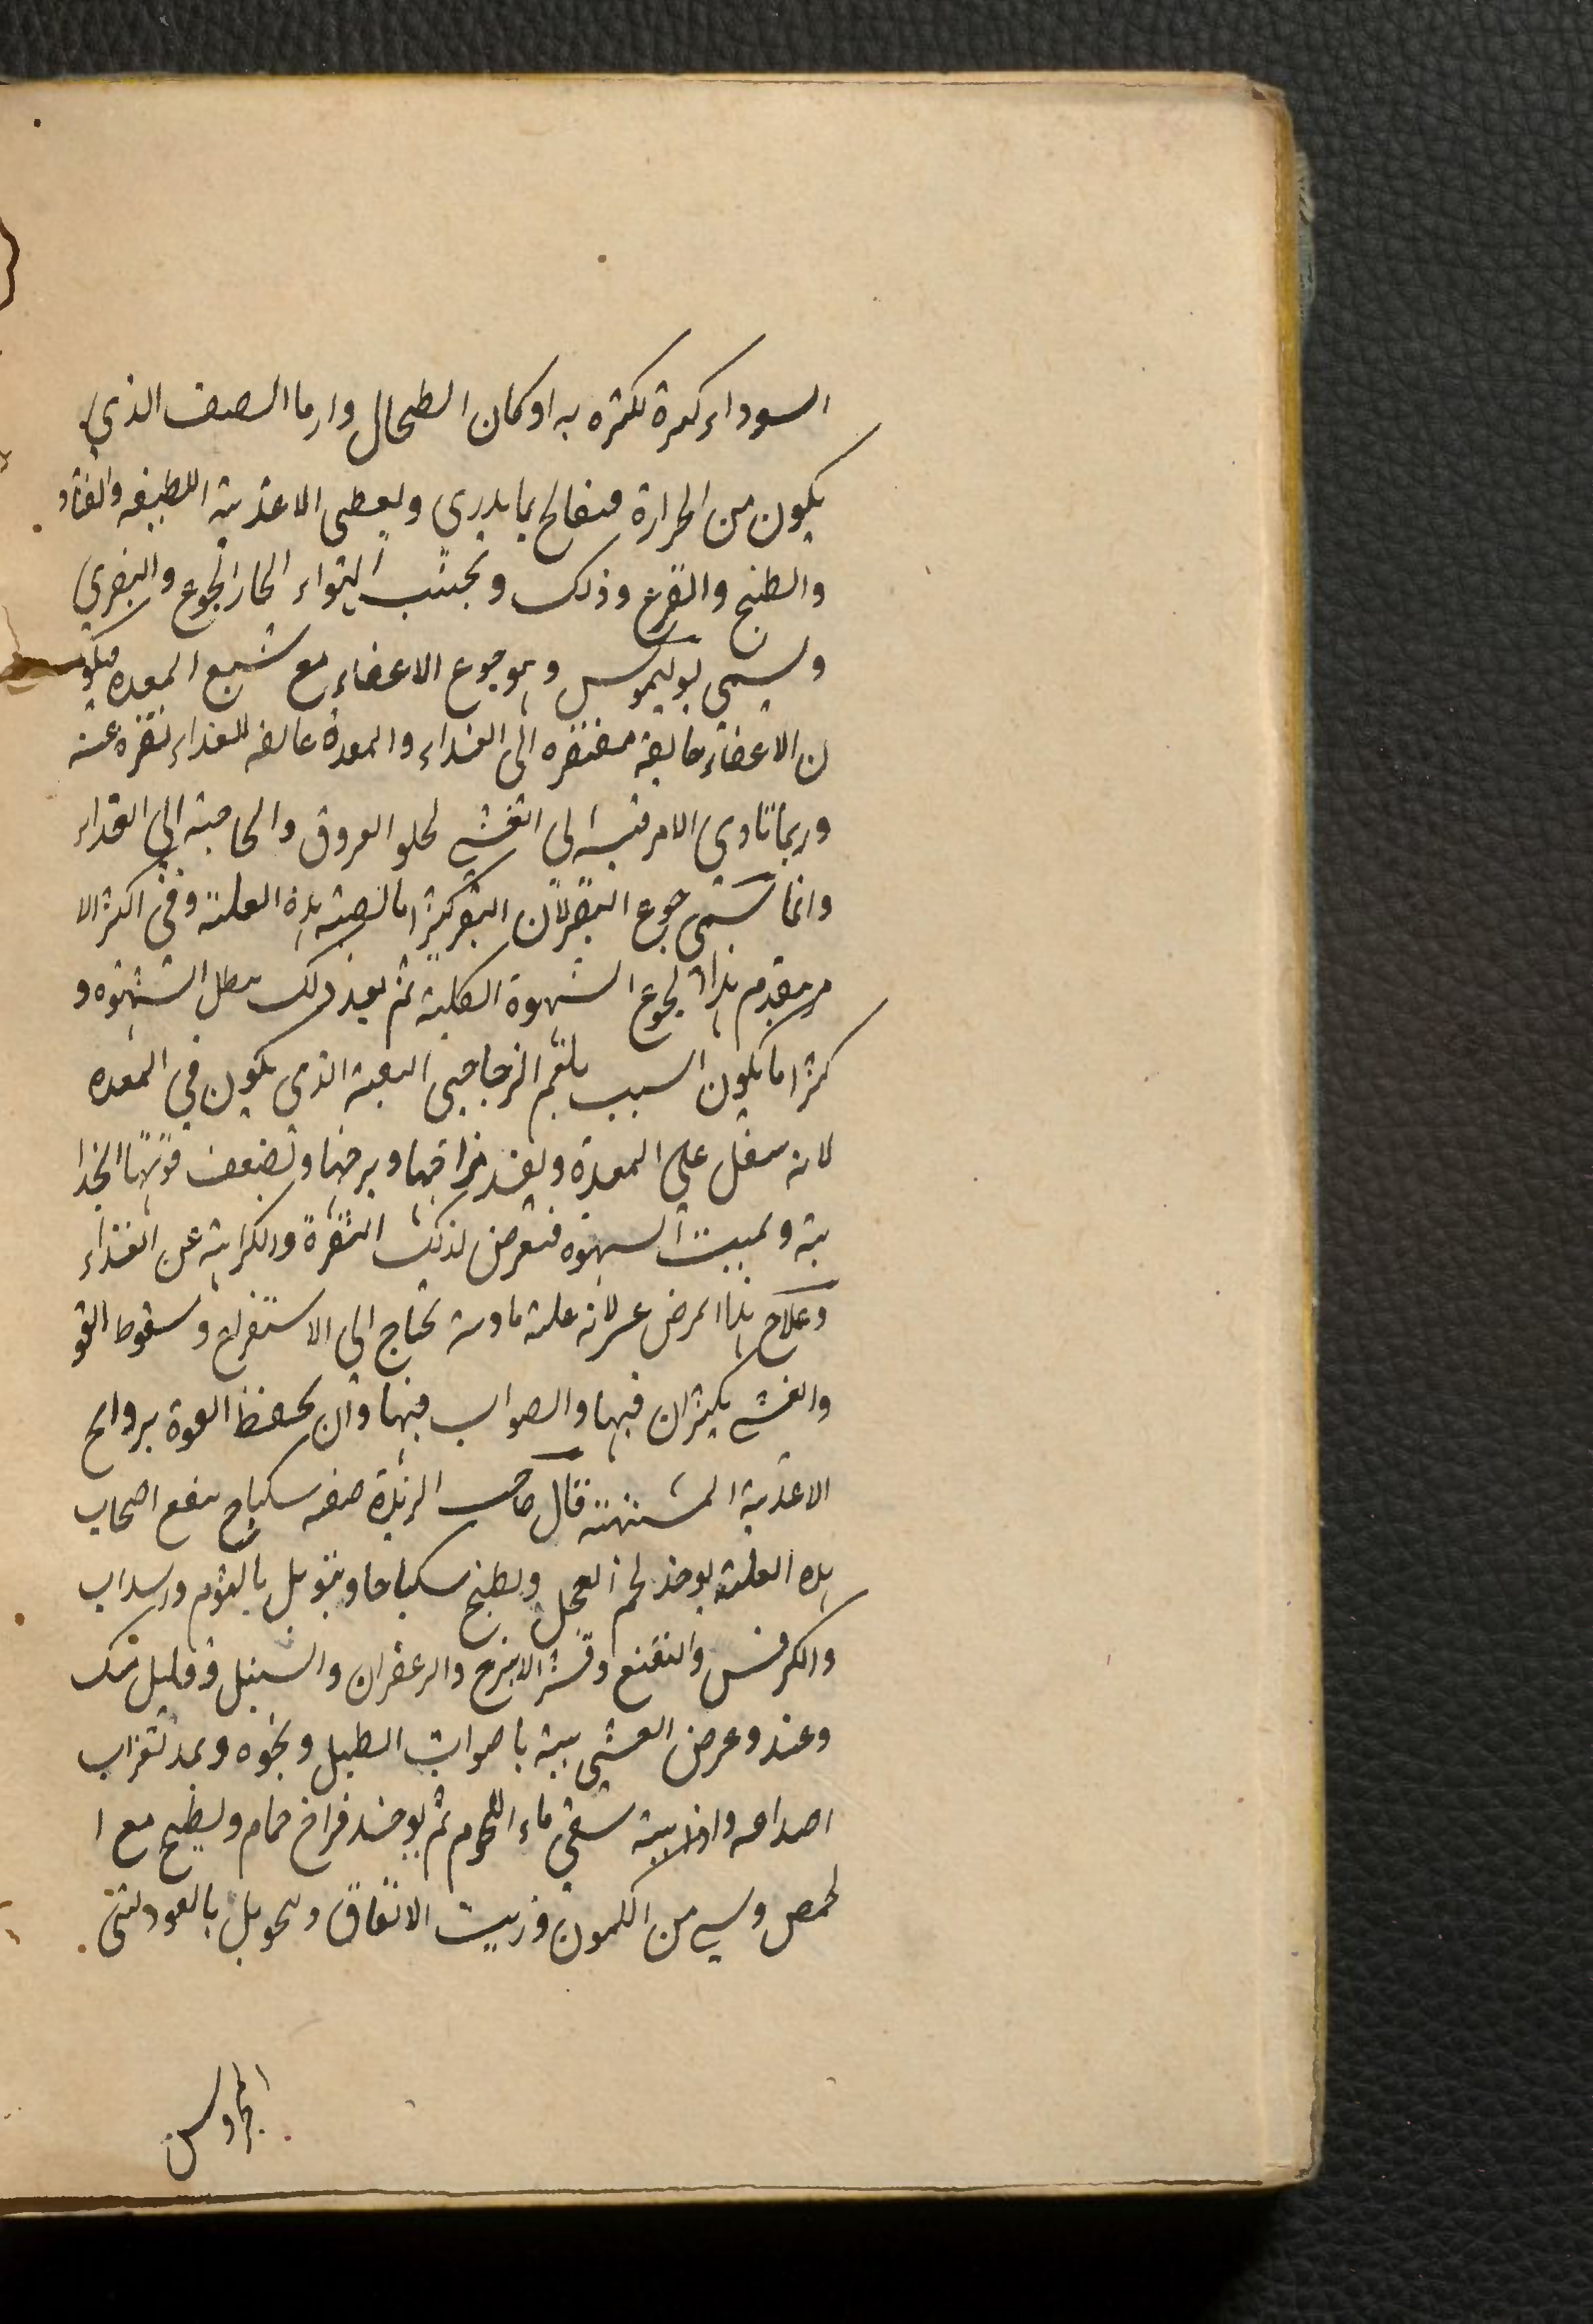 السوداء كثيرة لكثرة به او كان الطحال وارما الصنف الذي
يكون من الحرارة فيعالج بما يدري ويعطى الاغذية اللطيفة والقثاء
والطبخ والقرع وذلك وتجنب الهواء الحار الجوع والبقري
ويسمى بوليموس وهو جوع الاعضاء مع شبع المعده فيكو
ن الاعضاء جايعة مفتقره الى الغذاء والمعدة عايفه للغذاء نفره عنه
وربما تادى الامر فيه الى الغشي لخلو العروق والحاجة الى الغذاء
وانما سمي جوع البقر لان البقر كثيرا ما تصيبه هذه العلة وفي اكثر الا
مر يتقدم هذا الجوع الشهوة الكلبية ثم بعد ذلك بطل الشهوه و
كثيرا ما يكون السبب بلغم الزجاجي الذي يكون في المعده
لانه يثقل على المعدة ويفسد مزاجها ويرخيها وتضعف قوتها الجذا
بة ويميت الشهوه فتعرض لذلك النفرة والكراهية عن الغذاء
وعلاج هذا المرض عسر لانه علة مادية تحتاج الى الاستفراغ وسقوط القو
والغشي يكثران فيها والصواب فيها وان يحفظ القوة بروايح
الاغذية المشتهية قال صاحب الزبدة صفه سكباج ينفع اصحاب
هذه العلة يوخذ لحم العجل ويطبخ سكباجا ويتوبل بالثوم والسداب
والكرفس والنعنع وقشر الاترج والزعفران والسنبل وقليل مسك
وعند وعرض الغشي ينبه باصوات الطبل ونحوه ويمد شعرات
اصداغه واذا نبه سقي ماء اللحوم ثم يوخذ فراخ حمام ويطبخ مع ا
لحمص وشي من الكمون وزيت الانفاق ويتوبل بالعود